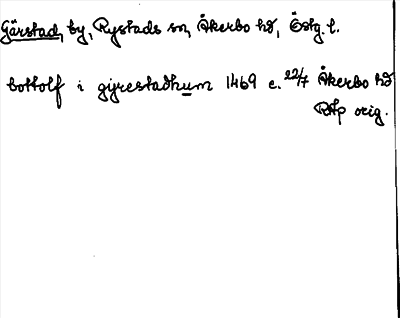 Gärstad, by, Rystads sn, Åkerbo hd, Östg. l.
bottolf i gyrestadhum 1469 e. 22/7 Åkerbo hd
RAp orig.